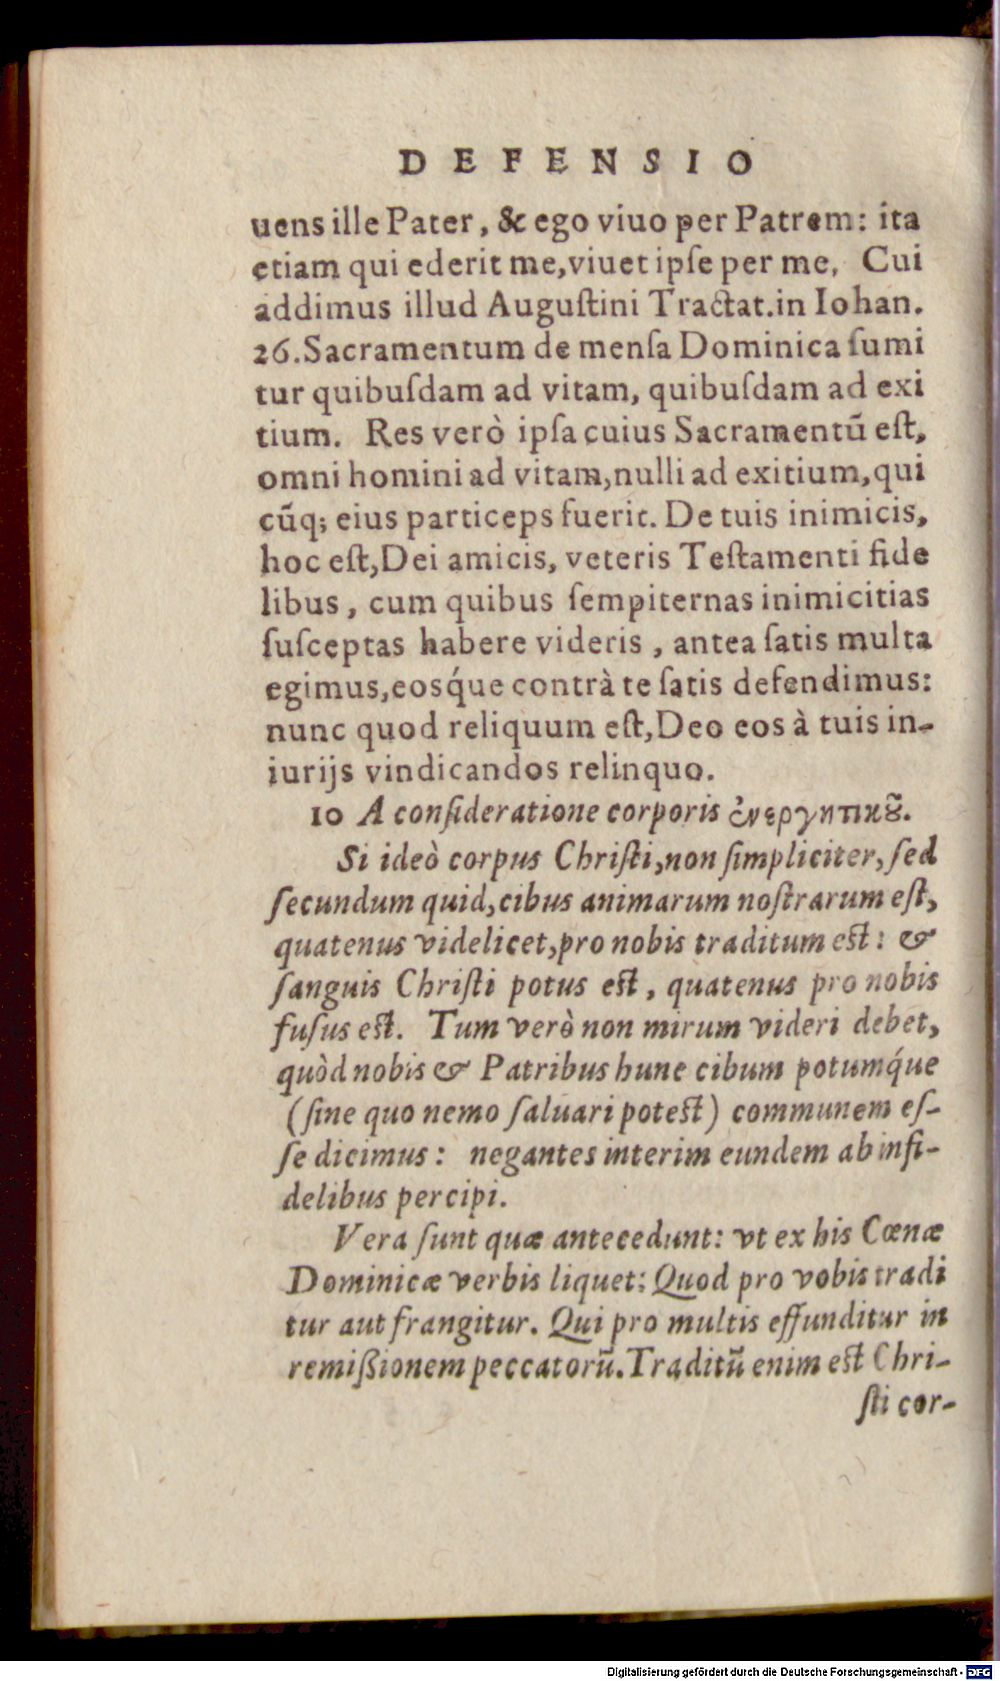 DEFENSIO
uens ille Pater, & ego viuo per Patrem: ita
etiam qui ederit me, viuet ipſe per me. Cui
addimus illud Auguſtini Tractat. in Iohan.
26. Sacramentum de menſa Dominica ſumi
tur quibuſdam ad vitam, quibuſdam ad exi
tium. Res verò ipſa cuius Sacramentũ eſt,
omni homini ad vitam, nulli ad exitium, qui
cũq; eius particeps fuerit. De tuis inimicis,
hoc eſt, Dei amicis, veteris Teſtamenti fide
libus, cum quibus ſempiternas inimicitias
ſuſceptas habere videris, antea ſatis multa
egimus, eosq́ue contrà te ſatis defendimus:
nunc quod reliquum eſt, Deo eos à tuis in-
iurijs vindicandos relinquo.
10 A conſideratione corporis ἐνεργητικȣ͂.
Si ideò corpus Chriſti, non ſimpliciter, ſed
ſecundum quid, cibus animarum noſtrarum eſt,
quatenus videlicet, pro nobis traditum eſt: &
ſanguis Chriſti potus eſt, quatenus pro nobis
fuſus eſt. Tum verò non mirum videri debet,
quòd nobis & Patribus hunc cibum potumq́ue
(ſine quo nemo ſaluari poteſt) communem eſ-
ſe dicimus: negantes interim eundem ab infi-
delibus percipi.
Vera ſunt quæ antecedunt: vt ex his Cœnæ
Dominicæ verbis liquet: Quod pro vobis tradi
tur aut frangitur. Qui pro multis effunditur in
remißionem peccatorũ. Traditũ enim eſt Chri-
ſti cor-
Digitalisierung gefördert durch die Deutsche Forschungsgemeinschaft - DFG